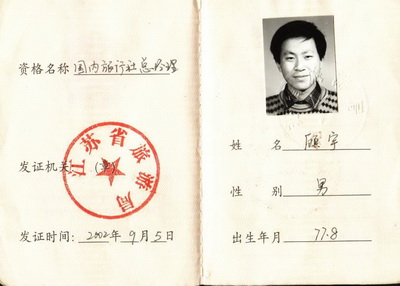 资格名称 国内旅行社总经理
发证机关 (章)
江苏省旅游局
发证时间: 2002年9月5日
姓名 顾宇
性别 男
出生年月 77.8